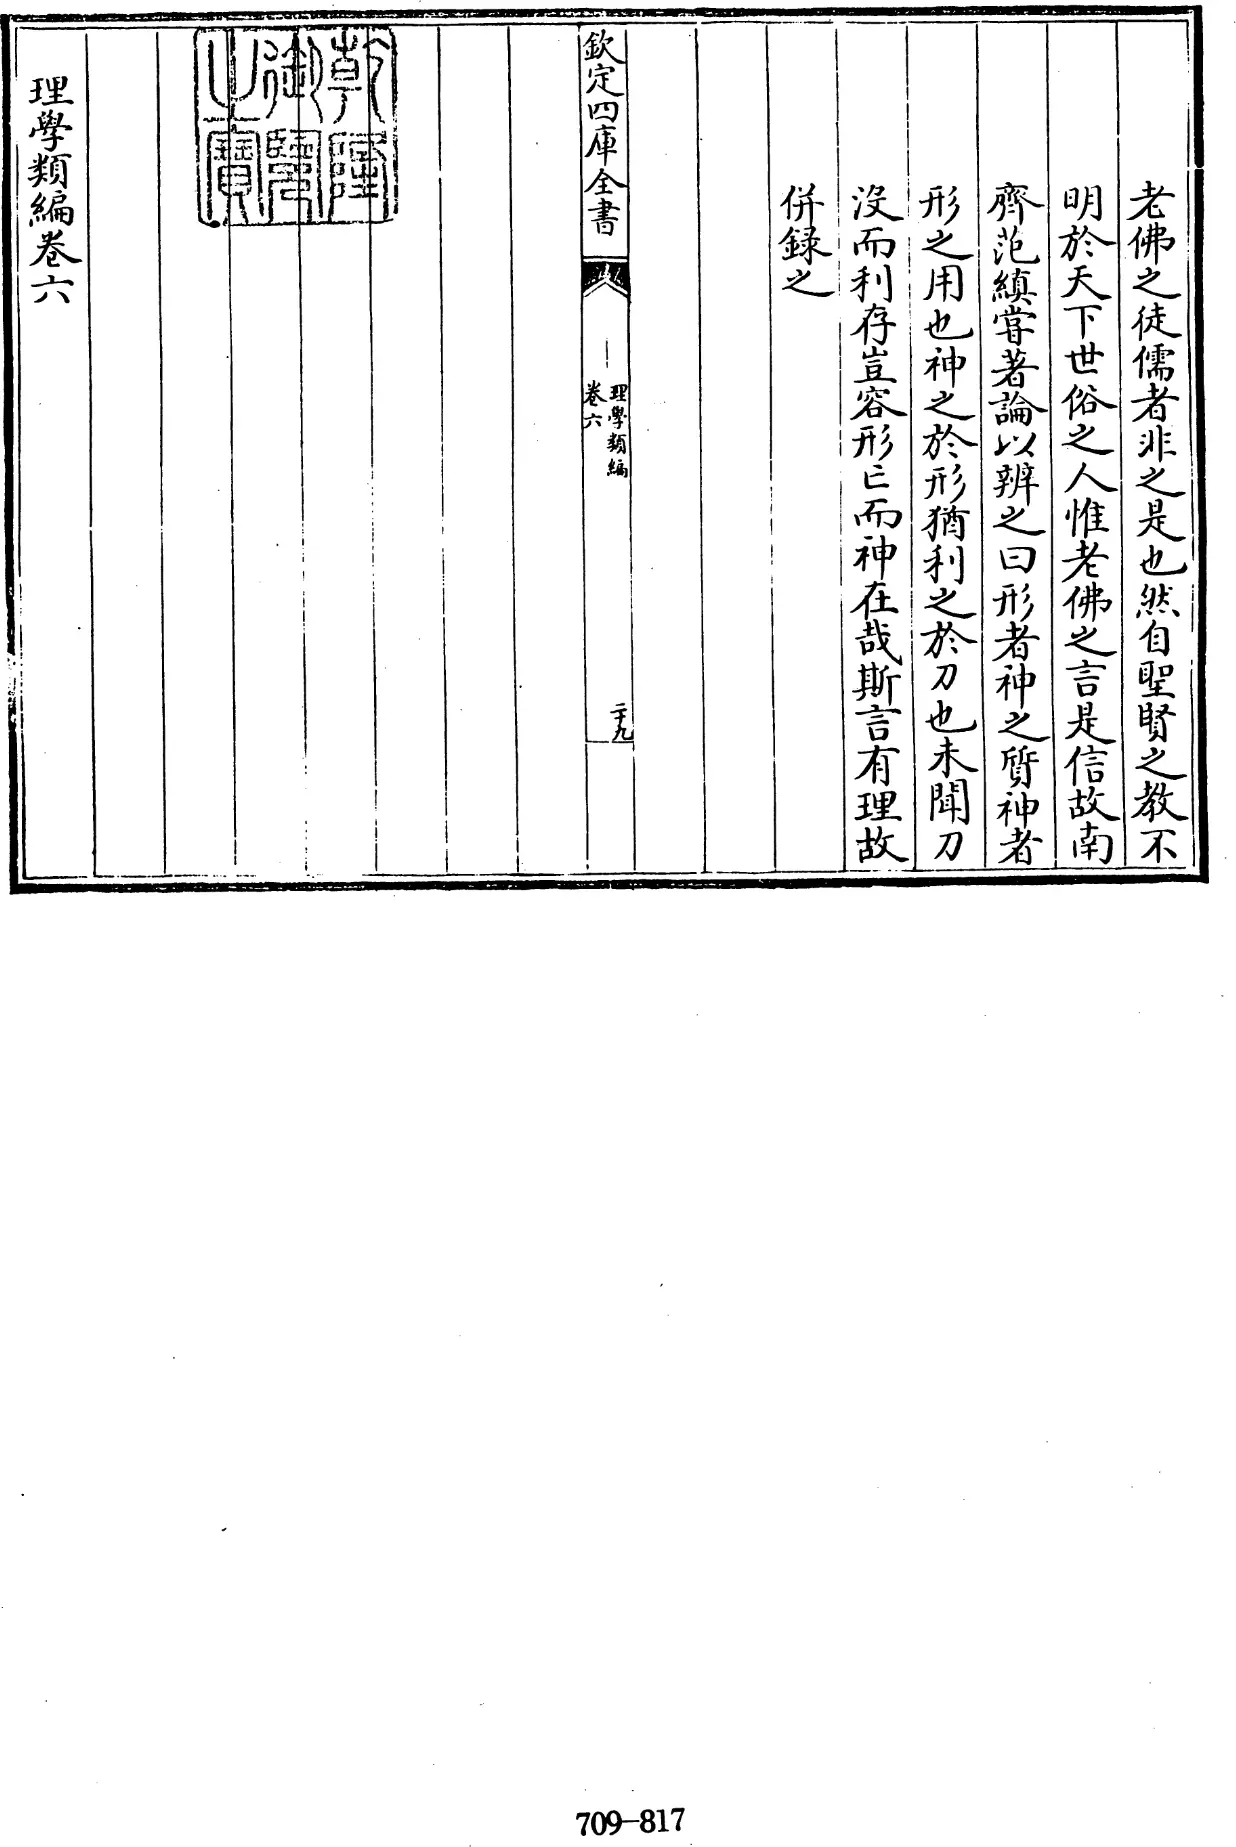 老佛之徒儒者非之是也然自聖賢之教不
明於天下世俗之人惟老佛之言是信故南
齊范縝嘗著論以辨之曰形者神之質神者
形之用也神之於形猶利之於刀也未聞刀
沒而利存豈容形亡而神在哉斯言有理故
併録之
欽定四庫全書
理學類編
卷六
二十九
乾隆
御覽
之寶
理學類編卷六
709-817